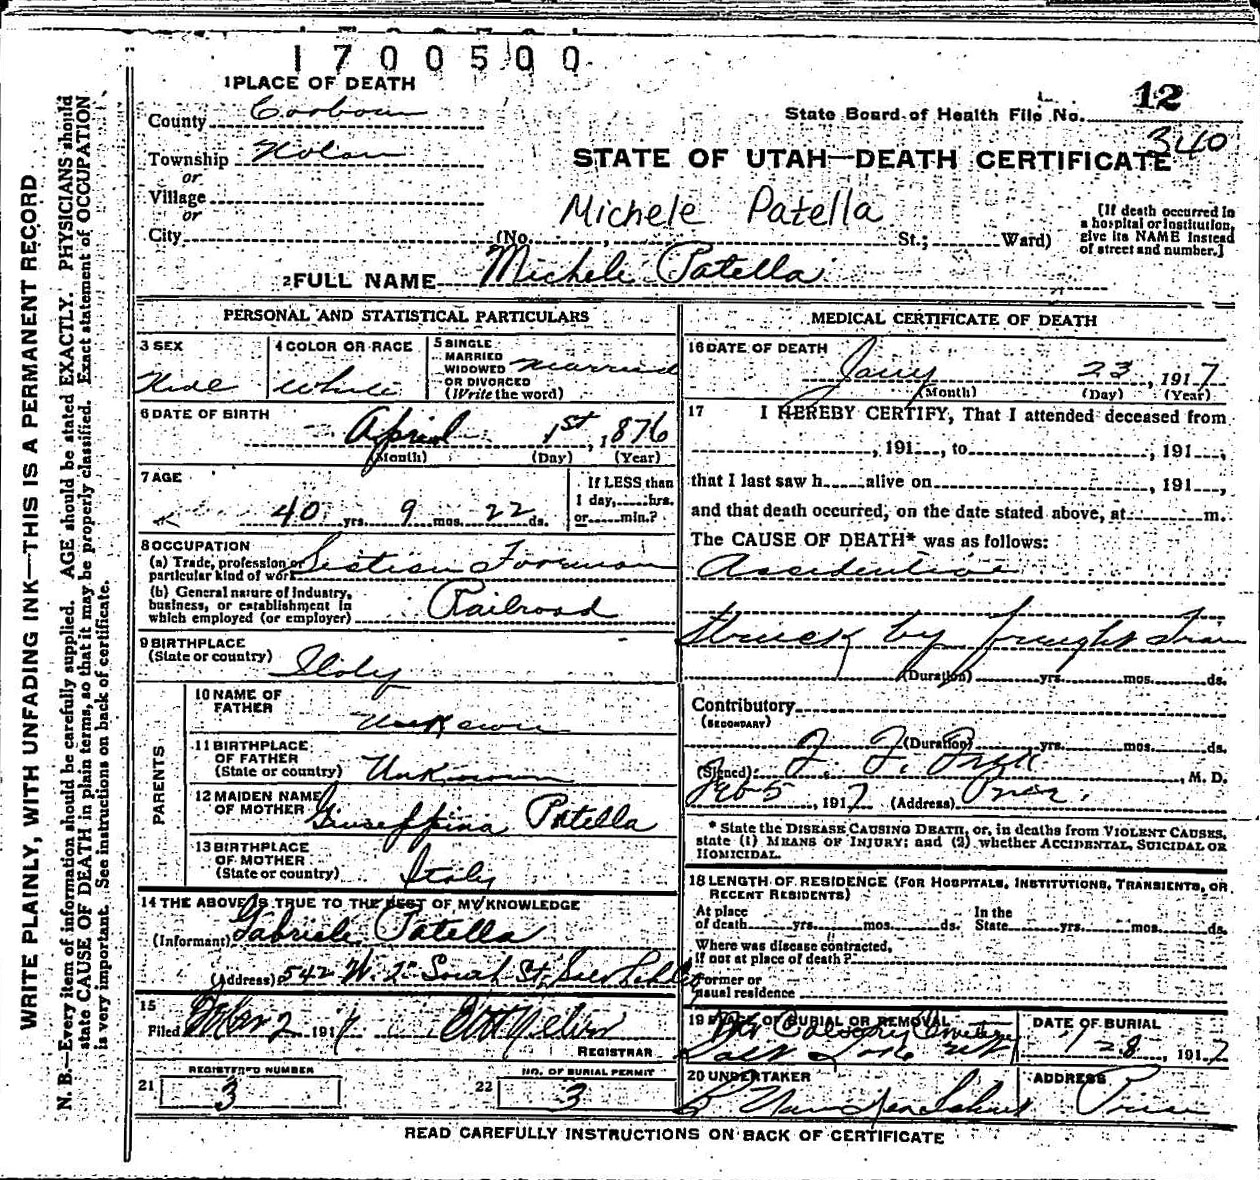 1700500
1 PLACE OF DEATH
12
County Carbon
State Board of Health File No.
340
Township Nolan
STATE OF UTAH—DEATH CERTIFICATE
or
Village
or
Michele Patella
[If death occurred in a hospital or institution, give its NAME instead of street and number.]
City (No. , St.; Ward)
2 FULL NAME Michele Patella
PERSONAL AND STATISTICAL PARTICULARS
3 SEX
Male
4 COLOR OR RACE
White
5 SINGLE
MARRIED
WIDOWED
OR DIVORCED
(Write the word)
Married
6 DATE OF BIRTH
April 1st, 1876
(Month) (Day) (Year)
7 AGE
40 yrs. 9 mos. 22 ds.
If LESS than
1 day, hrs.
or min.?
8 OCCUPATION
(a) Trade, profession or
particular kind of work Section Foreman
(b) General nature of Industry,
business, or establishment in
which employed (or employer) Railroad
9 BIRTHPLACE
(State or country) Italy
PARENTS
10 NAME OF
FATHER
Unknown
11 BIRTHPLACE
OF FATHER
(State or country) Unknown
12 MAIDEN NAME
OF MOTHER Giuseffina Patella
13 BIRTHPLACE
OF MOTHER
(State or country) Italy
14 THE ABOVE IS TRUE TO THE BEST OF MY KNOWLEDGE
(Informant) Gabriele Patella
(Address) 542 W. 2" South St.
15
Filed Mar 2 1917
REGISTRAR
REGISTERED NUMBER
21 3
NO. OF BURIAL PERMIT
22 3
MEDICAL CERTIFICATE OF DEATH
16 DATE OF DEATH
Jany 23, 1917
(Month) (Day) (Year)
17 I HEREBY CERTIFY, That I attended deceased from
, 191 , to , 191 ,
that I last saw h alive on , 191 ,
and that death occurred, on the date stated above, at m.
The CAUSE OF DEATH* was as follows:
struck by freught train
(Duration) yrs. mos. ds.
Contributory
(SECONDARY)
(Duration) yrs. mos. ds.
(Signed) F. F. Fisk, M. D.
Feb 5, 1917 (Address) Price.
* State the DISEASE CAUSING DEATH, or, in deaths from VIOLENT CAUSES,
state (1) MEANS OF INJURY; and (2) whether ACCIDENTAL, SUICIDAL OR
HOMICIDAL.
18 LENGTH OF RESIDENCE (FOR HOSPITALS, INSTITUTIONS, TRANSIENTS, OR
RECENT RESIDENTS)
At place
of death yrs. mos. ds.
In the
State yrs. mos. ds.
Where was disease contracted,
If not at place of death?
Former or
usual residence
19 PLACE OF BURIAL OR REMOVAL
Mt Calvary
Salt Lake
DATE OF BURIAL
1/28, 1917
20 UNDERTAKER
ADDRESS
Price
READ CAREFULLY INSTRUCTIONS ON BACK OF CERTIFICATE
WRITE PLAINLY, WITH UNFADING INK—THIS IS A PERMANENT RECORD
N. B.—Every item of information should be carefully supplied. AGE should be stated EXACTLY. PHYSICIANS should
state CAUSE OF DEATH in plain terms, so that it may be properly classified. Exact statement of OCCUPATION
is very important. See instructions on back of certificate.